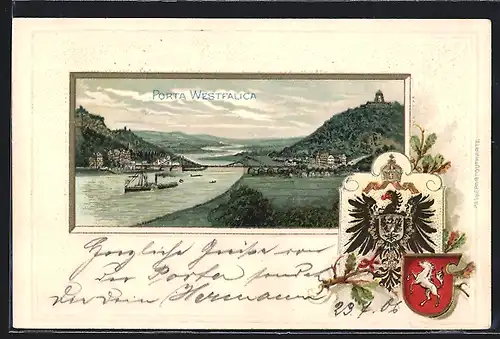 PORTA WESTFALICA
Herzliche Grüße von
der Porta sendet
Dir Dein Hermann
23.4.06